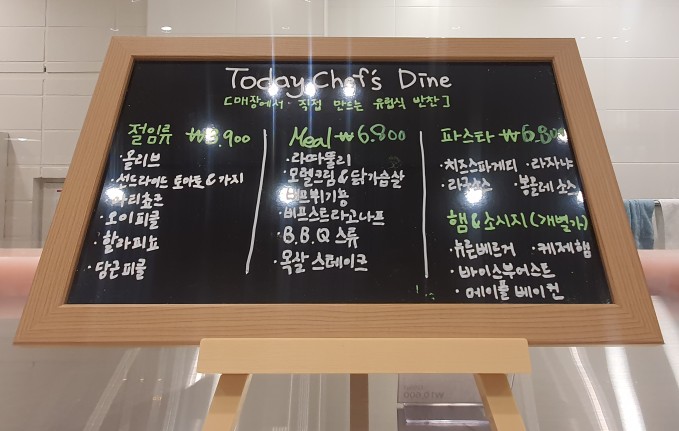 Today Chef's Dine
[매장에서 직접 만드는 유럽식 반찬]
절임류 ₩3,900
·올리브
·썬드라이드 토마토 & 가지
·아티쵸크
·오이피클
·할라피뇨
·당근피클
Meal ₩6.800
·라따뚤리
·모렐크림 & 닭가슴살
·비프뷔기뇽
·비프스트라고나프
·B.B.Q 스튜
·목살 스테이크
파스타 ₩6.800
·치즈스파게티 ·라자냐
·라구소스 ·봉골레 소스
햄 & 소시지 (개별가)
·뉘른베르거 ·케제햄
·바이스부어스트
·메이플 베이컨